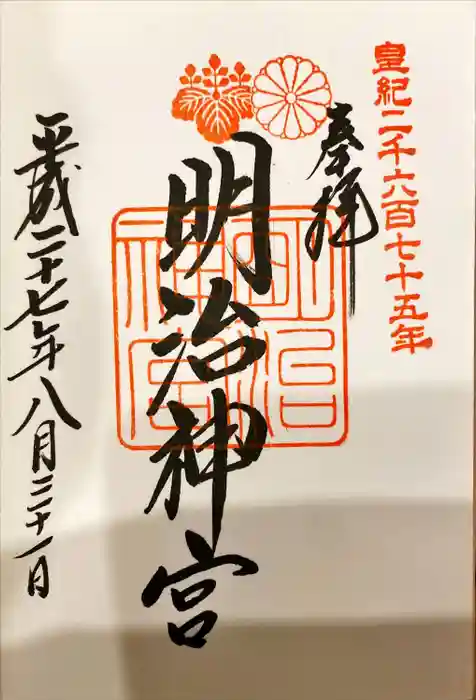 皇紀二千六百七十五年
奉拝
明治神宮
明治神宮
平成二十七年八月三十一日